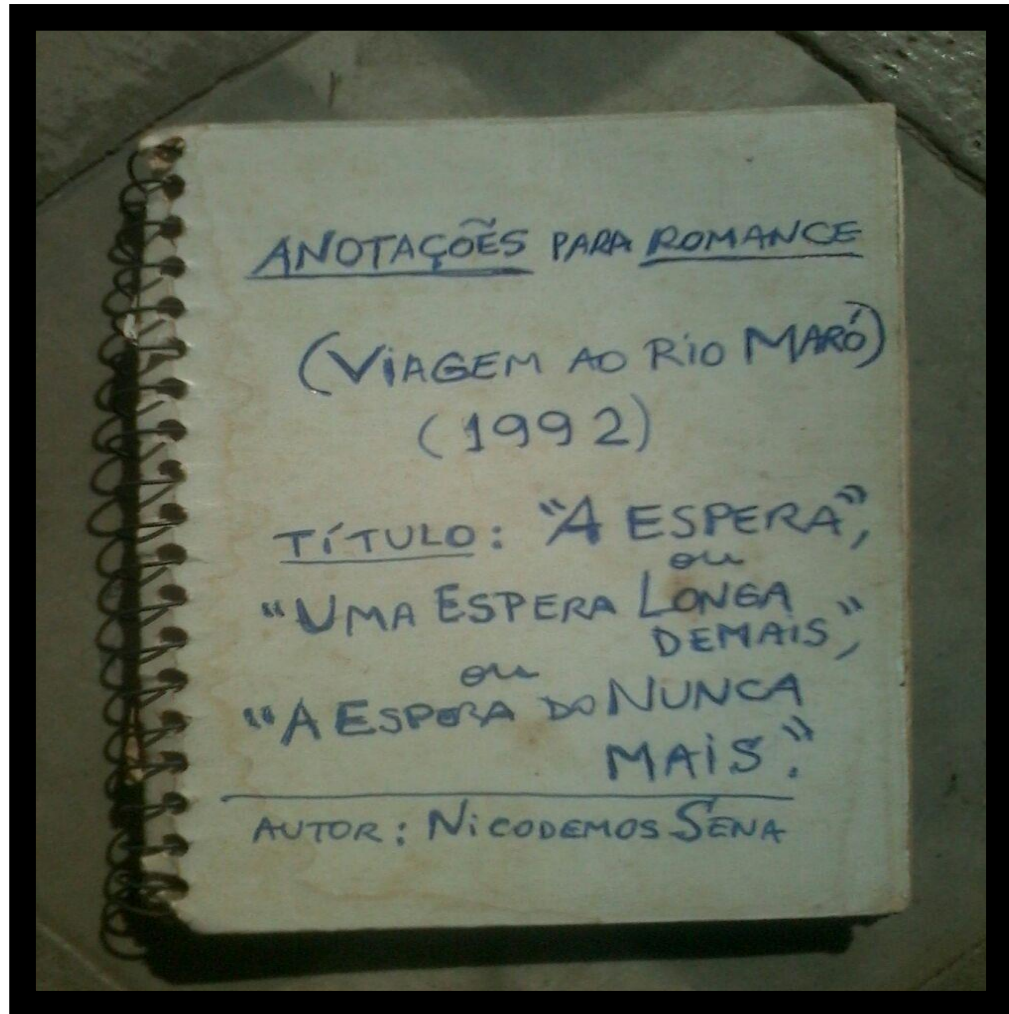 ANOTAÇÕES PARA ROMANCE
(VIAGEM AO RIO MARÓ)
(1992)
TÍTULO: "A ESPERA",
ou
"UMA ESPERA LONGA
DEMAIS",
ou
"A ESPERA DO NUNCA
MAIS".
AUTOR: NICODEMOS SENA